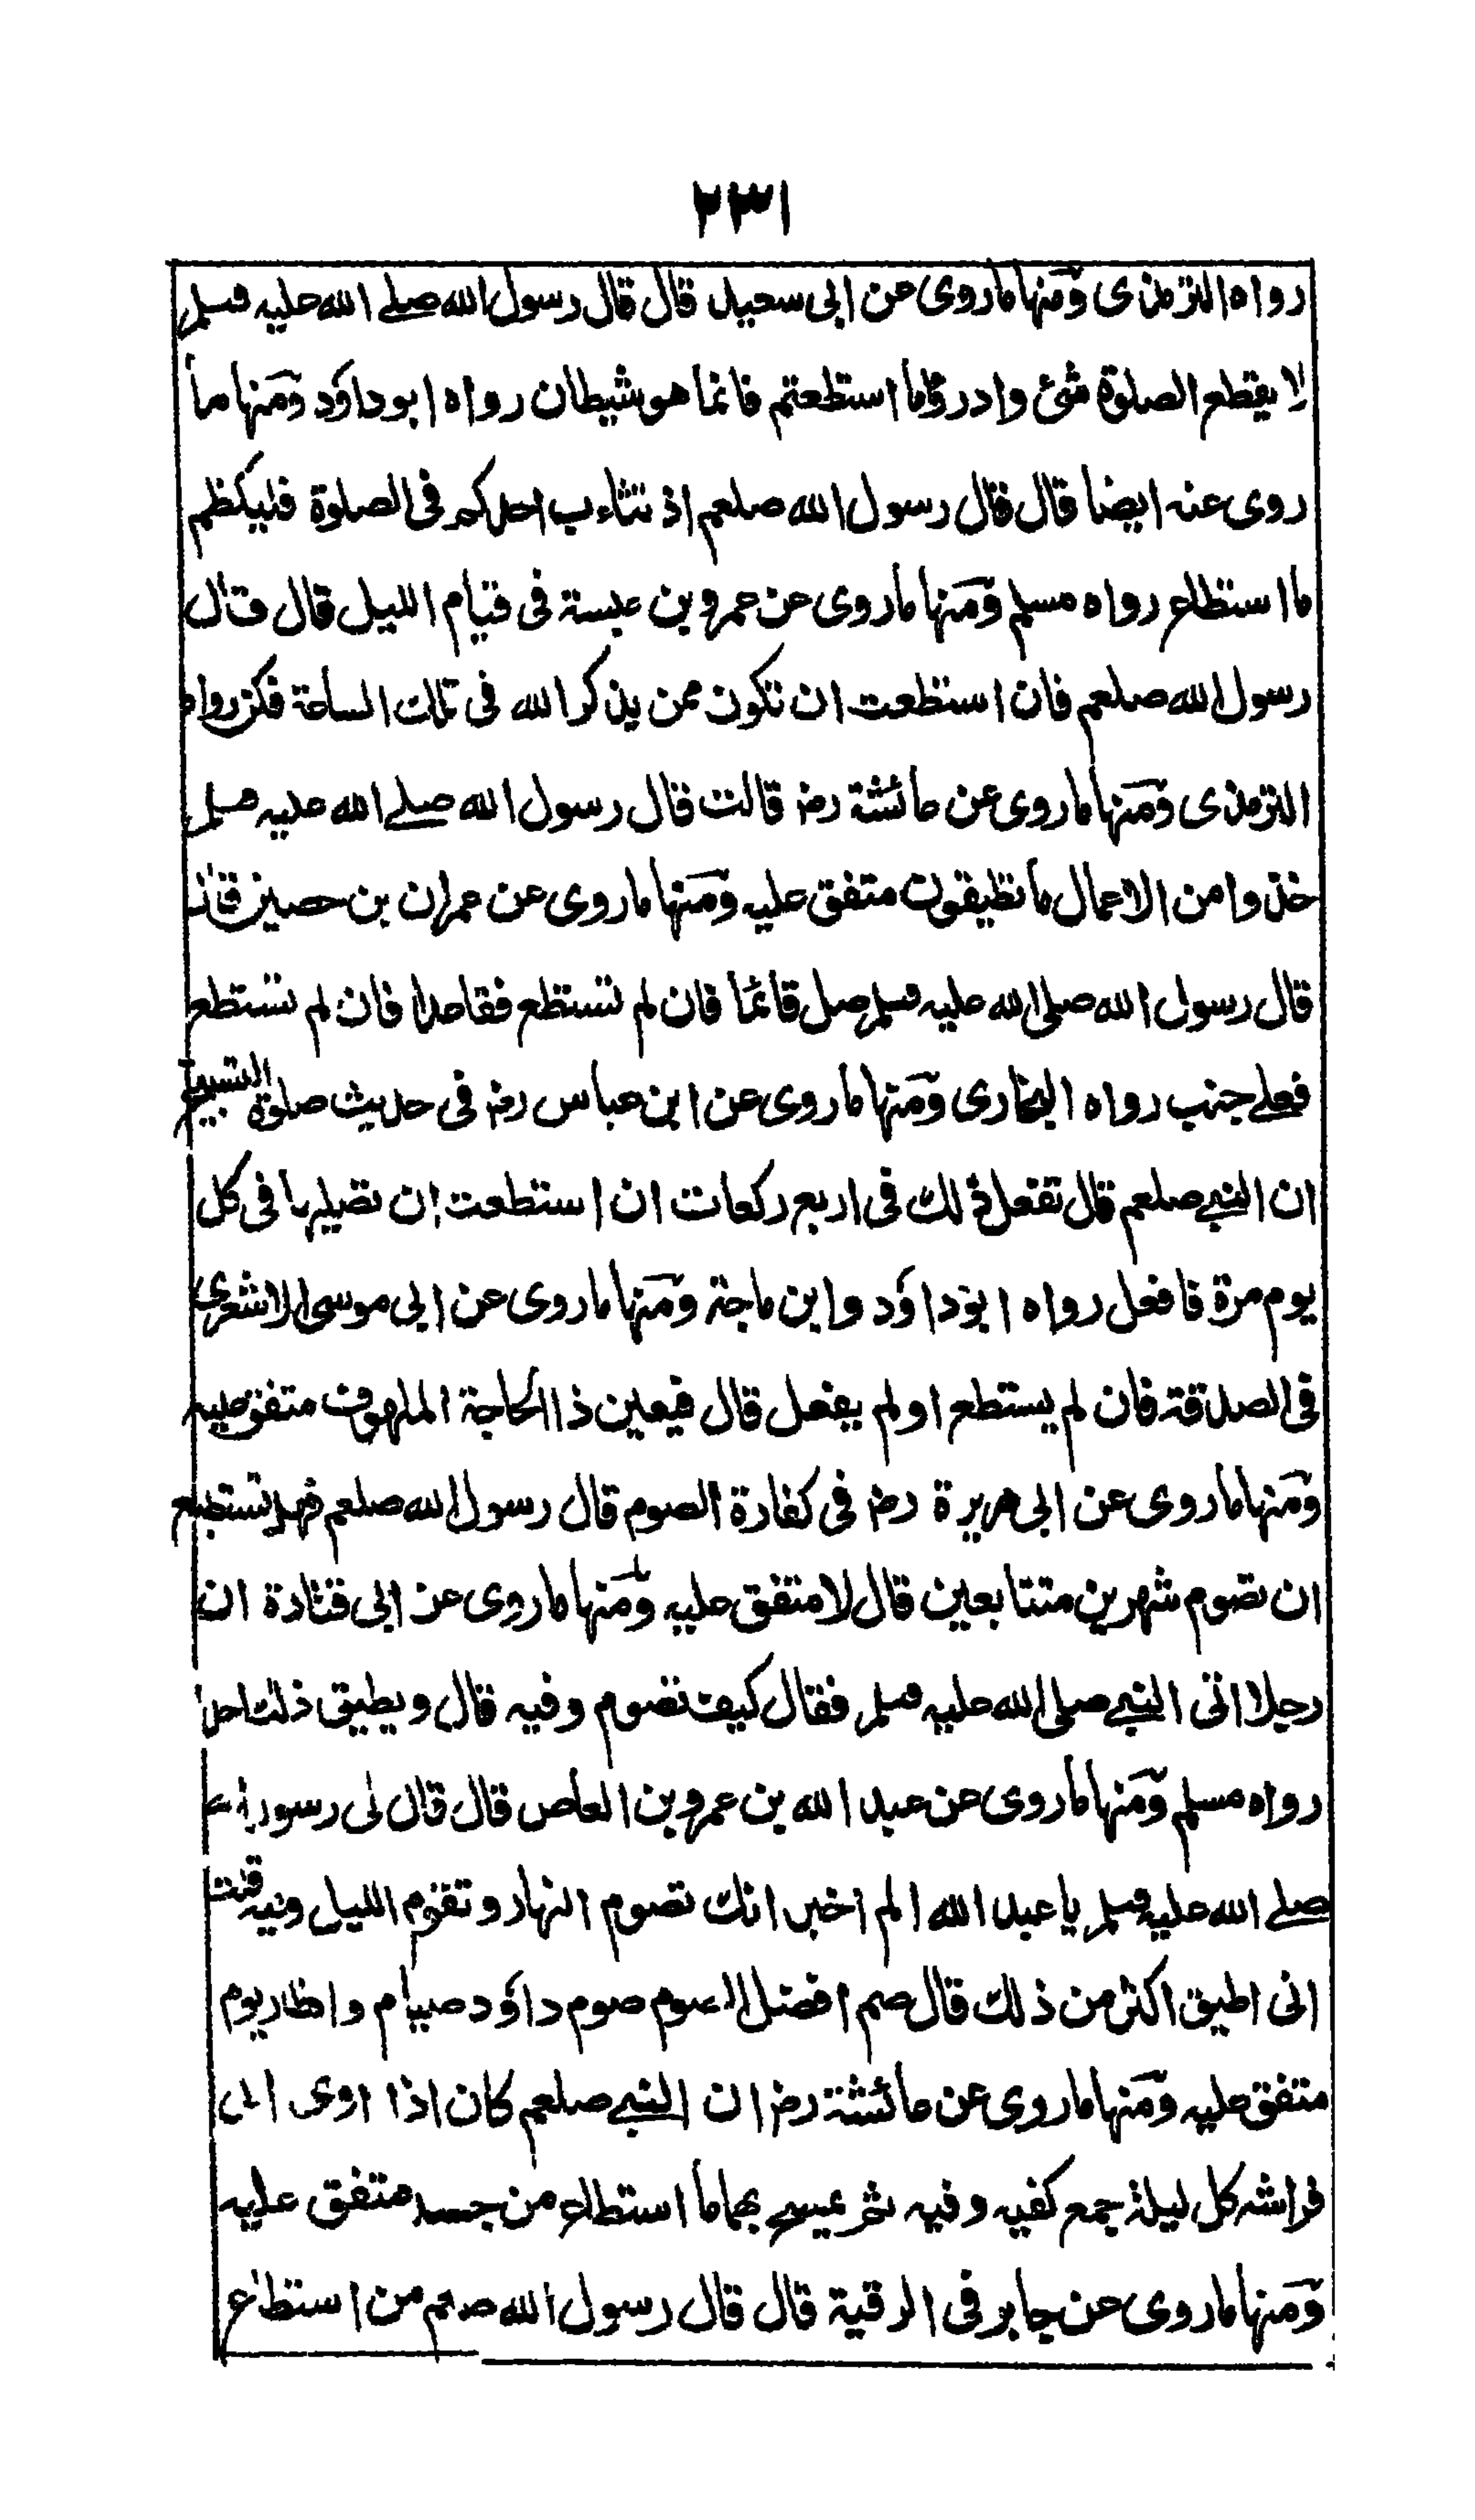 ٢٣١
رواه الترمذى ومنها ماروى عن ابى سعيد قال قال رسول الله صلے الله عليه وسلم
لا يقطع الصلوة شئ وادرؤا ما استطعتم فانما هو شيطان رواه ابو داؤد ومنها ما
روى عنه ايضا قال قال رسول الله صلعم اذ تثاءب احدكم فى الصلوة فليكظم
ما استطاع رواه مسلم ومنها ماروى عن عمرو بن عبسة فى قيام الليل قال قال
رسول الله صلعم فان استطعت ان تكون ممن يذكر الله فى تلك الساعة فكن رواه
الترمذى ومنها ماروى عن عائشة رض قالت قال رسول الله صلے الله عليه وسلم
خذوا من الاعمال ما تطيقون متفق عليه ومنها ماروى عن عمران بن حصين قال
قال رسول الله صلى الله عليه وسلم صل قائما فان لم تستطع فقاعدا فان لم تستطع
فعلے جنب رواه البخارى ومنها ماروى عن ابن عباس رض فى حديث صلوة التسبيح
ان النبے صلعم قال تفعل ذلك فى اربع ركعات ان استطعت ان تصليها فى كل
يوم مرة فافعل رواه ابو داؤد وابن ماجة ومنها ماروى عن ابى موسى الاشعرى
فى الصدقة فان لم يستطع او لم يفعل قال فيعين ذا الحاجة الملهوف متفق عليه
ومنها ماروى عن ابى هريرة رض فى كفارة الصوم قال رسول الله صلعم فهل تستطيع
ان تصوم شهرين متتابعين قال لا متفق عليه ومنها ماروى عن ابى قتادة ان
رجلا اتى النبے صلى الله عليه وسلم فقال كيف تصوم وفيه قال ويطيق ذلك احد
رواه مسلم ومنها ماروى عن عبد الله بن عمرو بن العاص قال قال لى رسول الله
صلے الله عليه وسلم يا عبد الله الم اخبر انك تصوم النهار وتقوم الليل وفيه قلت
انى اطيق اكثر من ذلك قال صم افضل الصوم صوم داؤد صيام وافطار يوم
متفق عليه ومنها ماروى عن عائشة رض ان النبے صلعم كان اذا اوى الى
فراشه كل ليلة جمع كفيه وفيه ثم يمسح بهما ما استطاع من جسد متفق عليه
ومنها ماروى عن جابر فى الرقية قال قال رسول الله صلعم من استطاع